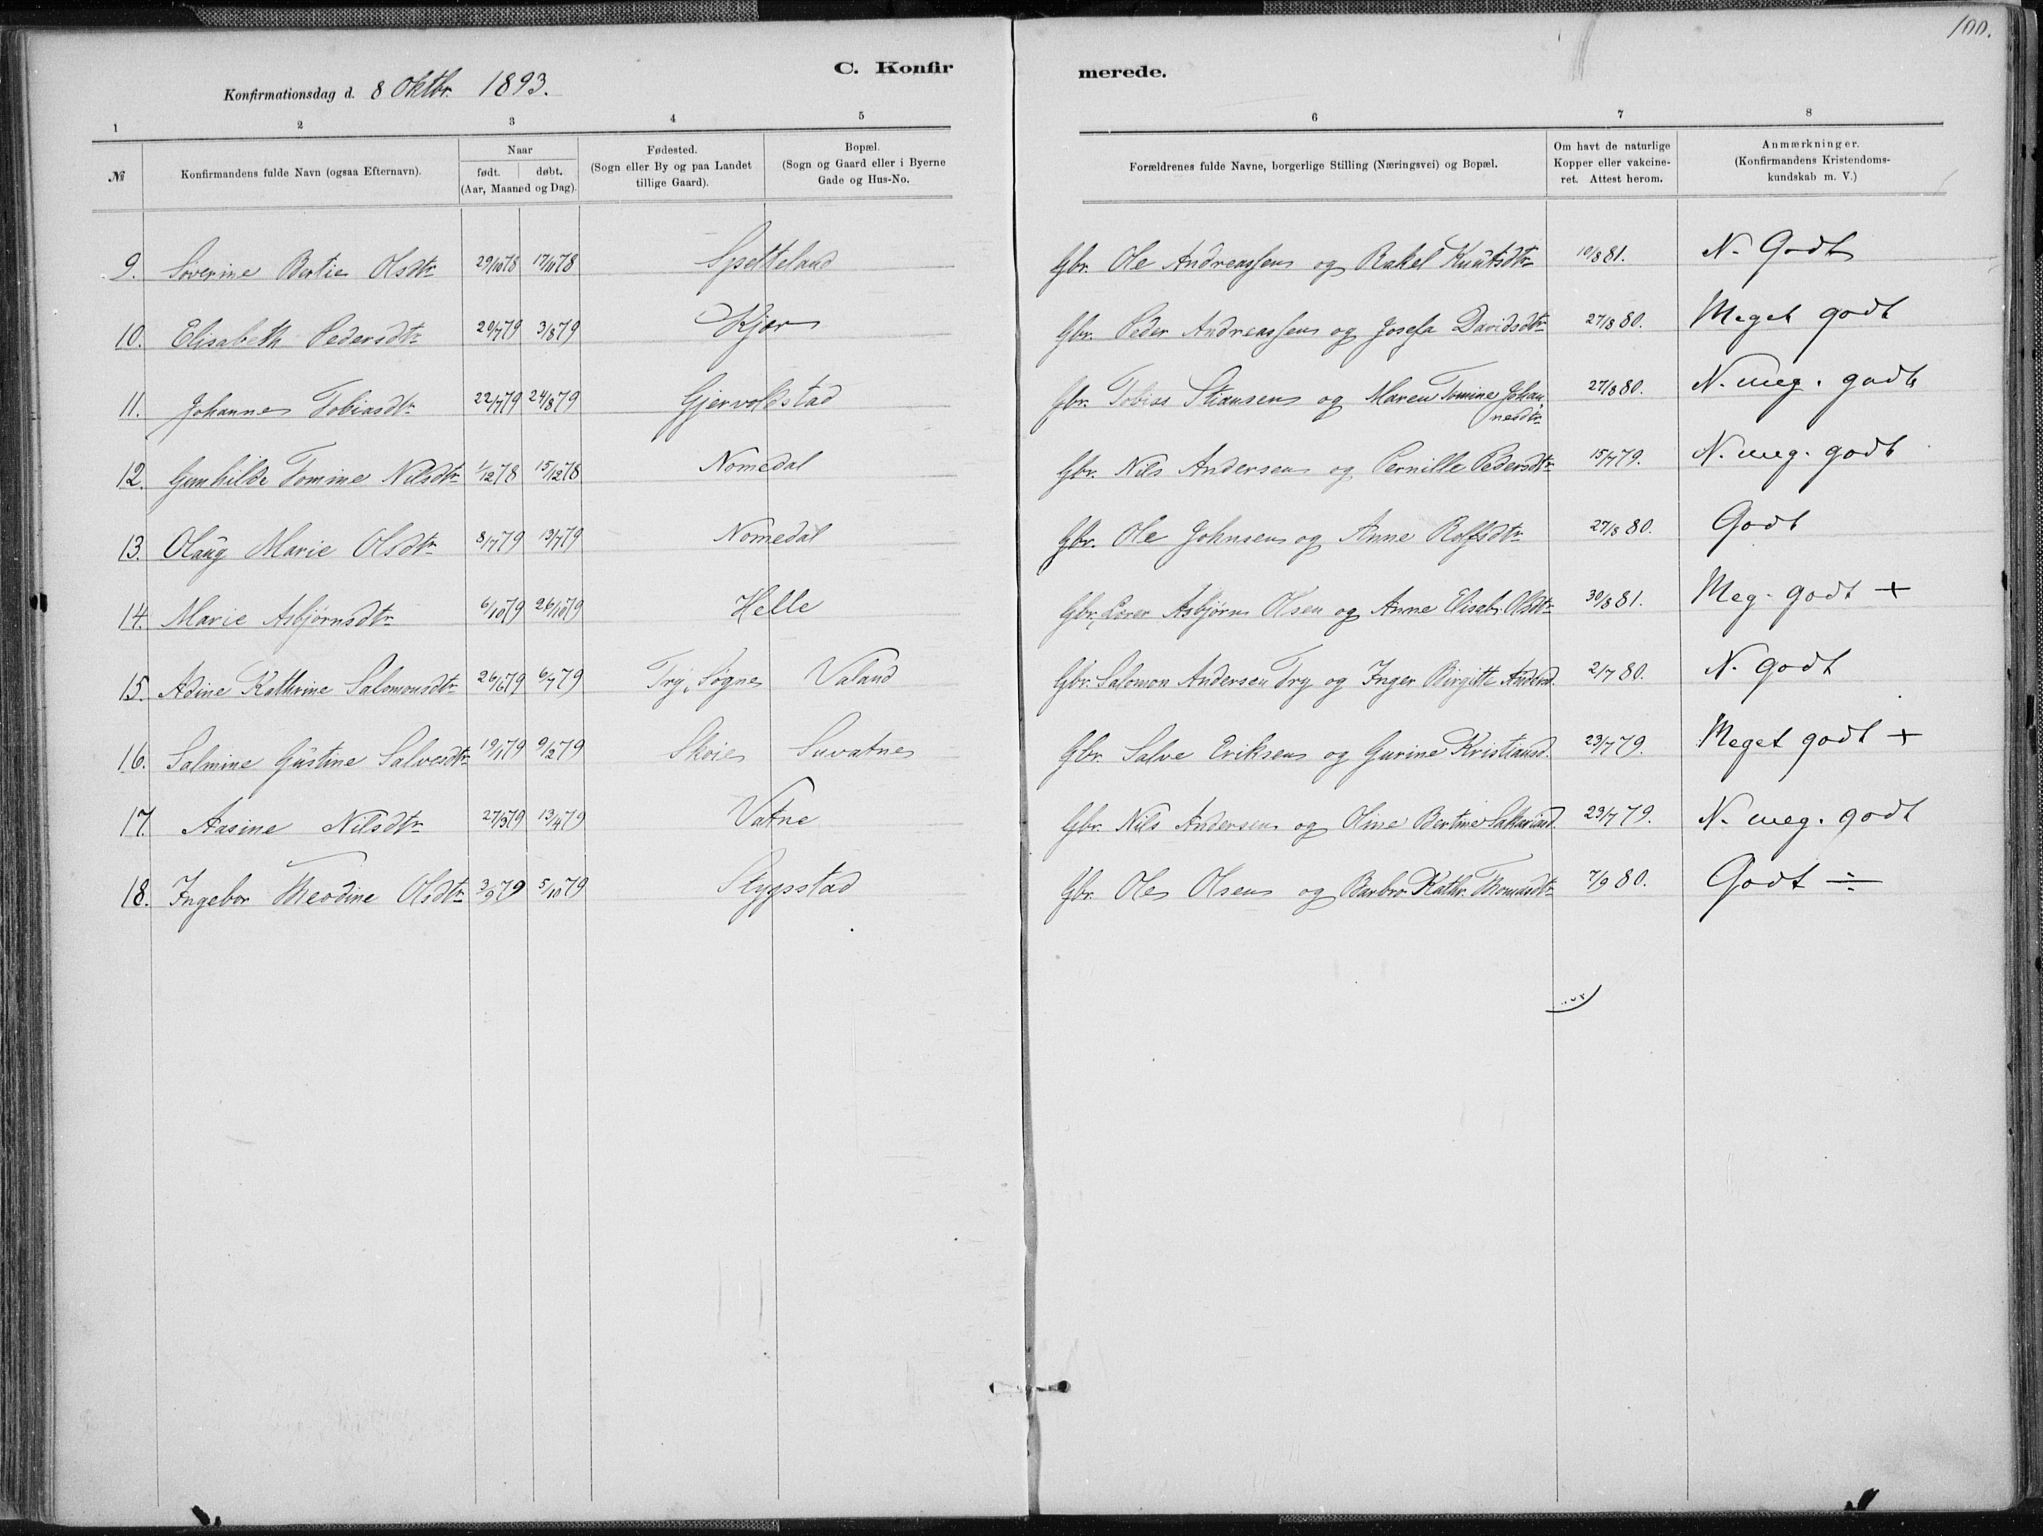 100.
C. Konfir merede.
Konfirmationsdag d. 8 Oktbr. 1893.
1 2 3 4 5 6 7 8
№ Konfirmandens fulde Navn (ogsaa Efternavn). Naar født. døbt. (Aar, Maaned og Dag). Fødested. (Sogn eller By og paa Landet tillige Gaard). Bopæl. (Sogn og Gaard eller i Byerne Gade og Hus-No. Forældrenes fulde Navne, borgerlige Stilling (Næringsvei) og Bopæl. Om havt de naturlige Kopper eller vakcineret. Attest herom. Anmærkninger. (Konfirmandens Kristendomskundskab m. V.)
9. Severine Bertie Olsdtr 29/10 78 17/11 78 Spetteland Gbr. Ole Andreassen og Rakel Knutsdtr 10/8 81. N. Godt
10. Elisabeth Pedersdtr 20/7 79 3/8 79 Kjær Gbr. Peder Andreassen og Josefa Davidsdtr 27/8 80. Meget godt
11. Johanne Tobiasdtr 22/7 79 24/8 79 Gjervoldstad Gbr. Tobias Stiansen og Maren Tomine Johannesdtr 27/8 80. N. meg. godt
12. Gunhilde Tomine Nilsdtr 1/12 78 15/12 78 Nomedal Gbr. Nils Andersen og Pernille Pedersdtr 15/7 79. N. meg. godt
13. Olaug Marie Olsdtr 8/7 79 13/7 79 Nomedal Gbr. Ole Johnsen og Anne Rolfsdtr 27/8 80. Godt
14. Marie Asbjørnsdtr 6/10 79 26/10 79 Helle Gbr., Lærer Asbjørn Olsen og Anne Elisab. Olsdtr 30/8 81. Meg. godt +
15. Adine Kathrine Salomonsdtr 26/6 79 6/7 79 Try, Søgne Valand Gbr. Salomon Andersen Try og Inger Birgitte Andersd. 2/7 80. N. godt
16. Salmine Gustine Salvesdtr 19/1 79 9/2 79 Skoie Suvatne Gbr. Salve Eriksen og Gurine Kristiansd. 23/7 79. Meget godt +
17. Aasine Nilsdtr 27/3 79 13/4 79 Vatne Gbr. Nils Andersen og Oline Bertine Sakariasd. 23/7 79. N. meg. godt
18. Ingebor Theodine Olsdtr 3/9 79 5/10 79 Stypstad Gbr. Ole Olsen og Barbro Kathr. Thomasdtr 7/9 80. Godt ÷